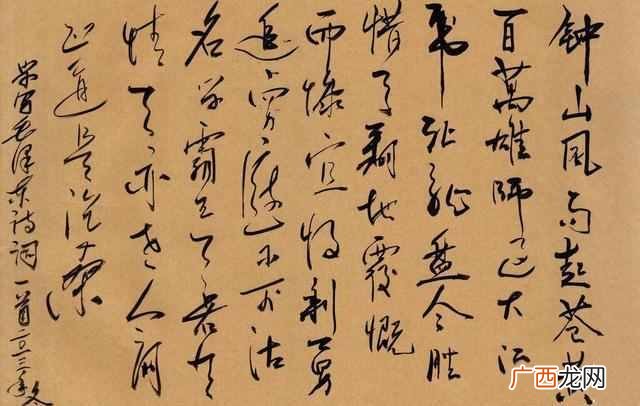 钟山风雨起苍黄
百萬雄師过大江
虎踞龍盘今胜
惜天翻地覆慨
而慷宜将剩勇
追窮寇不可沽
名学霸王天若有
情天亦老人间
正道是滄桑
毛泽东诗词一首二〇一三年冬
广西龙网